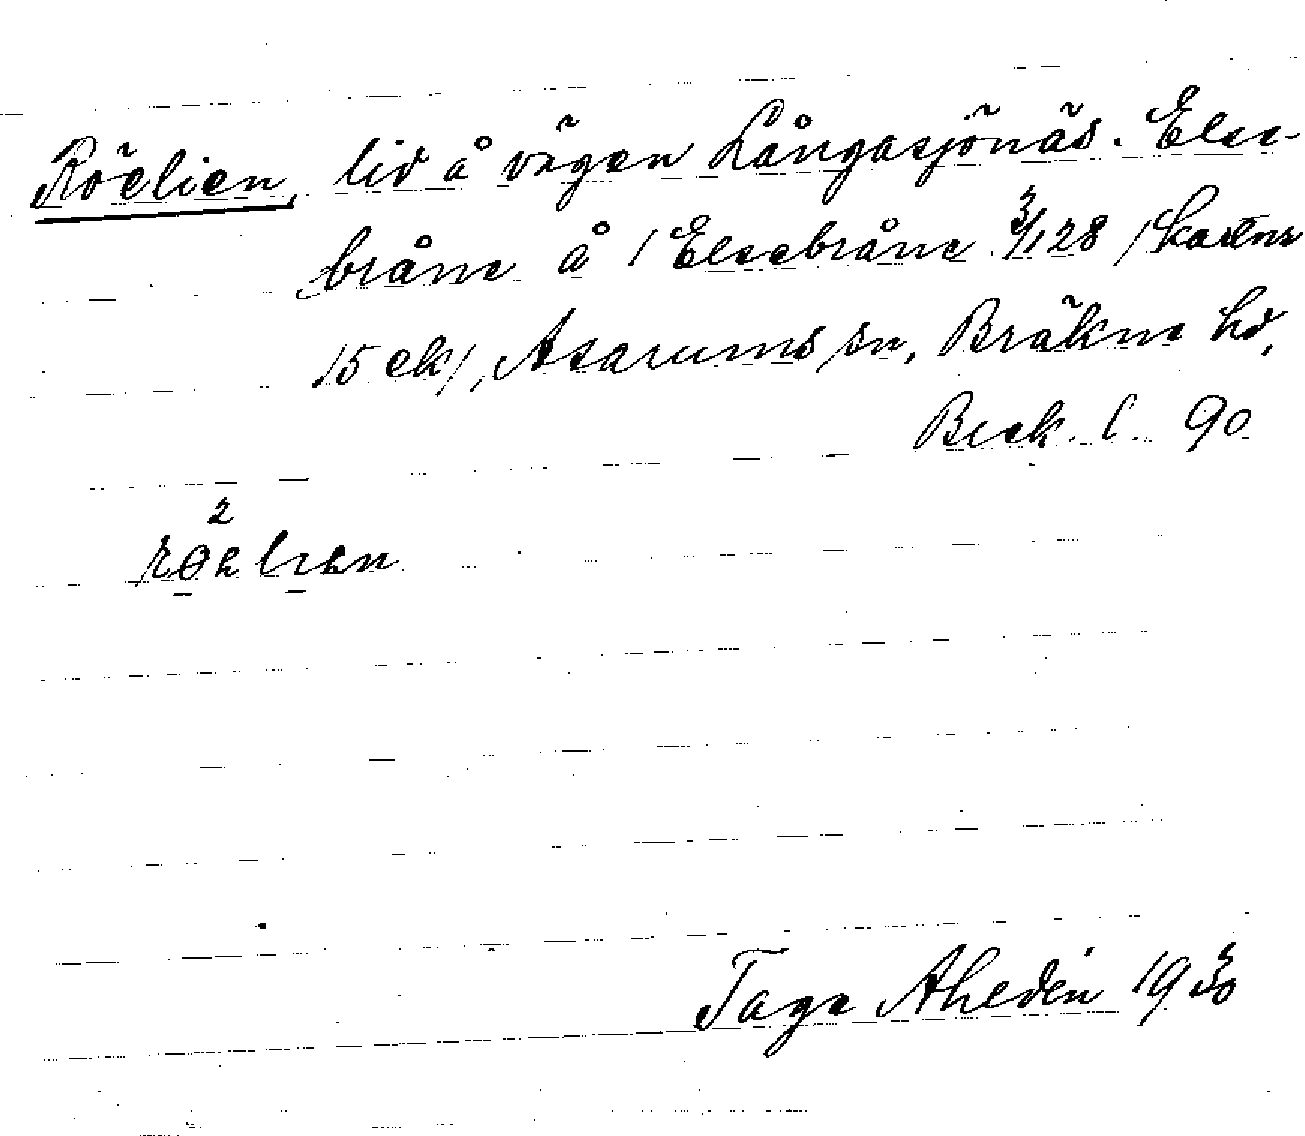 Röelien, lid å vägen Långasjönäs. Else-
bråne å / Elsebråne 3/128 / kartnr
15 ek/, Asarums sn, Bräkne hd,
Blek. l. 90
2
röelien
Tage Ahedén 1930